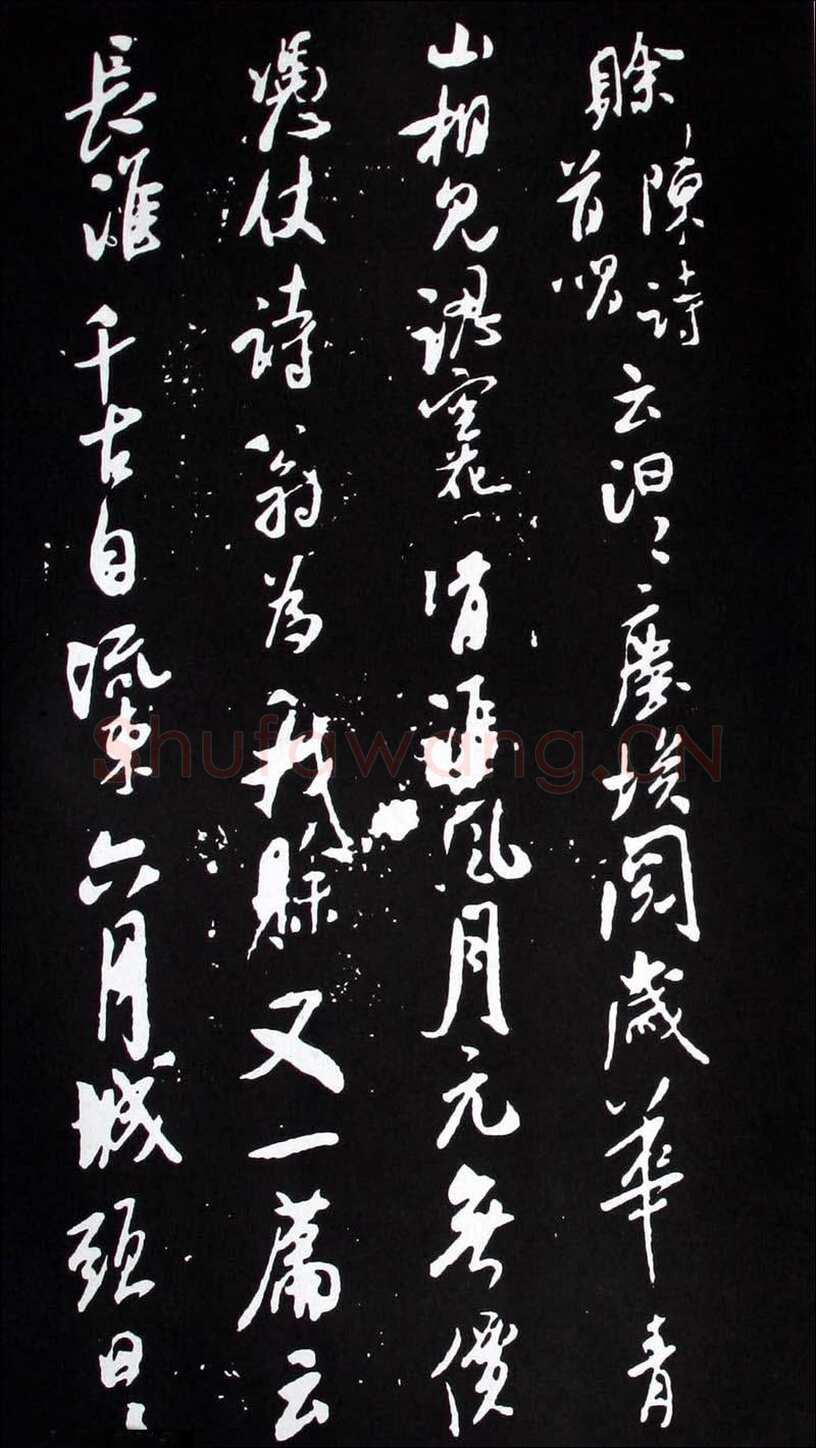 賒陳詩首唱云汩々塵埃閱歲華青
山相見誤空花清追風月元無價
憑仗詩翁為我賒又一篇云
長淮千古自流東六月城頭日々
Shufawang.CN